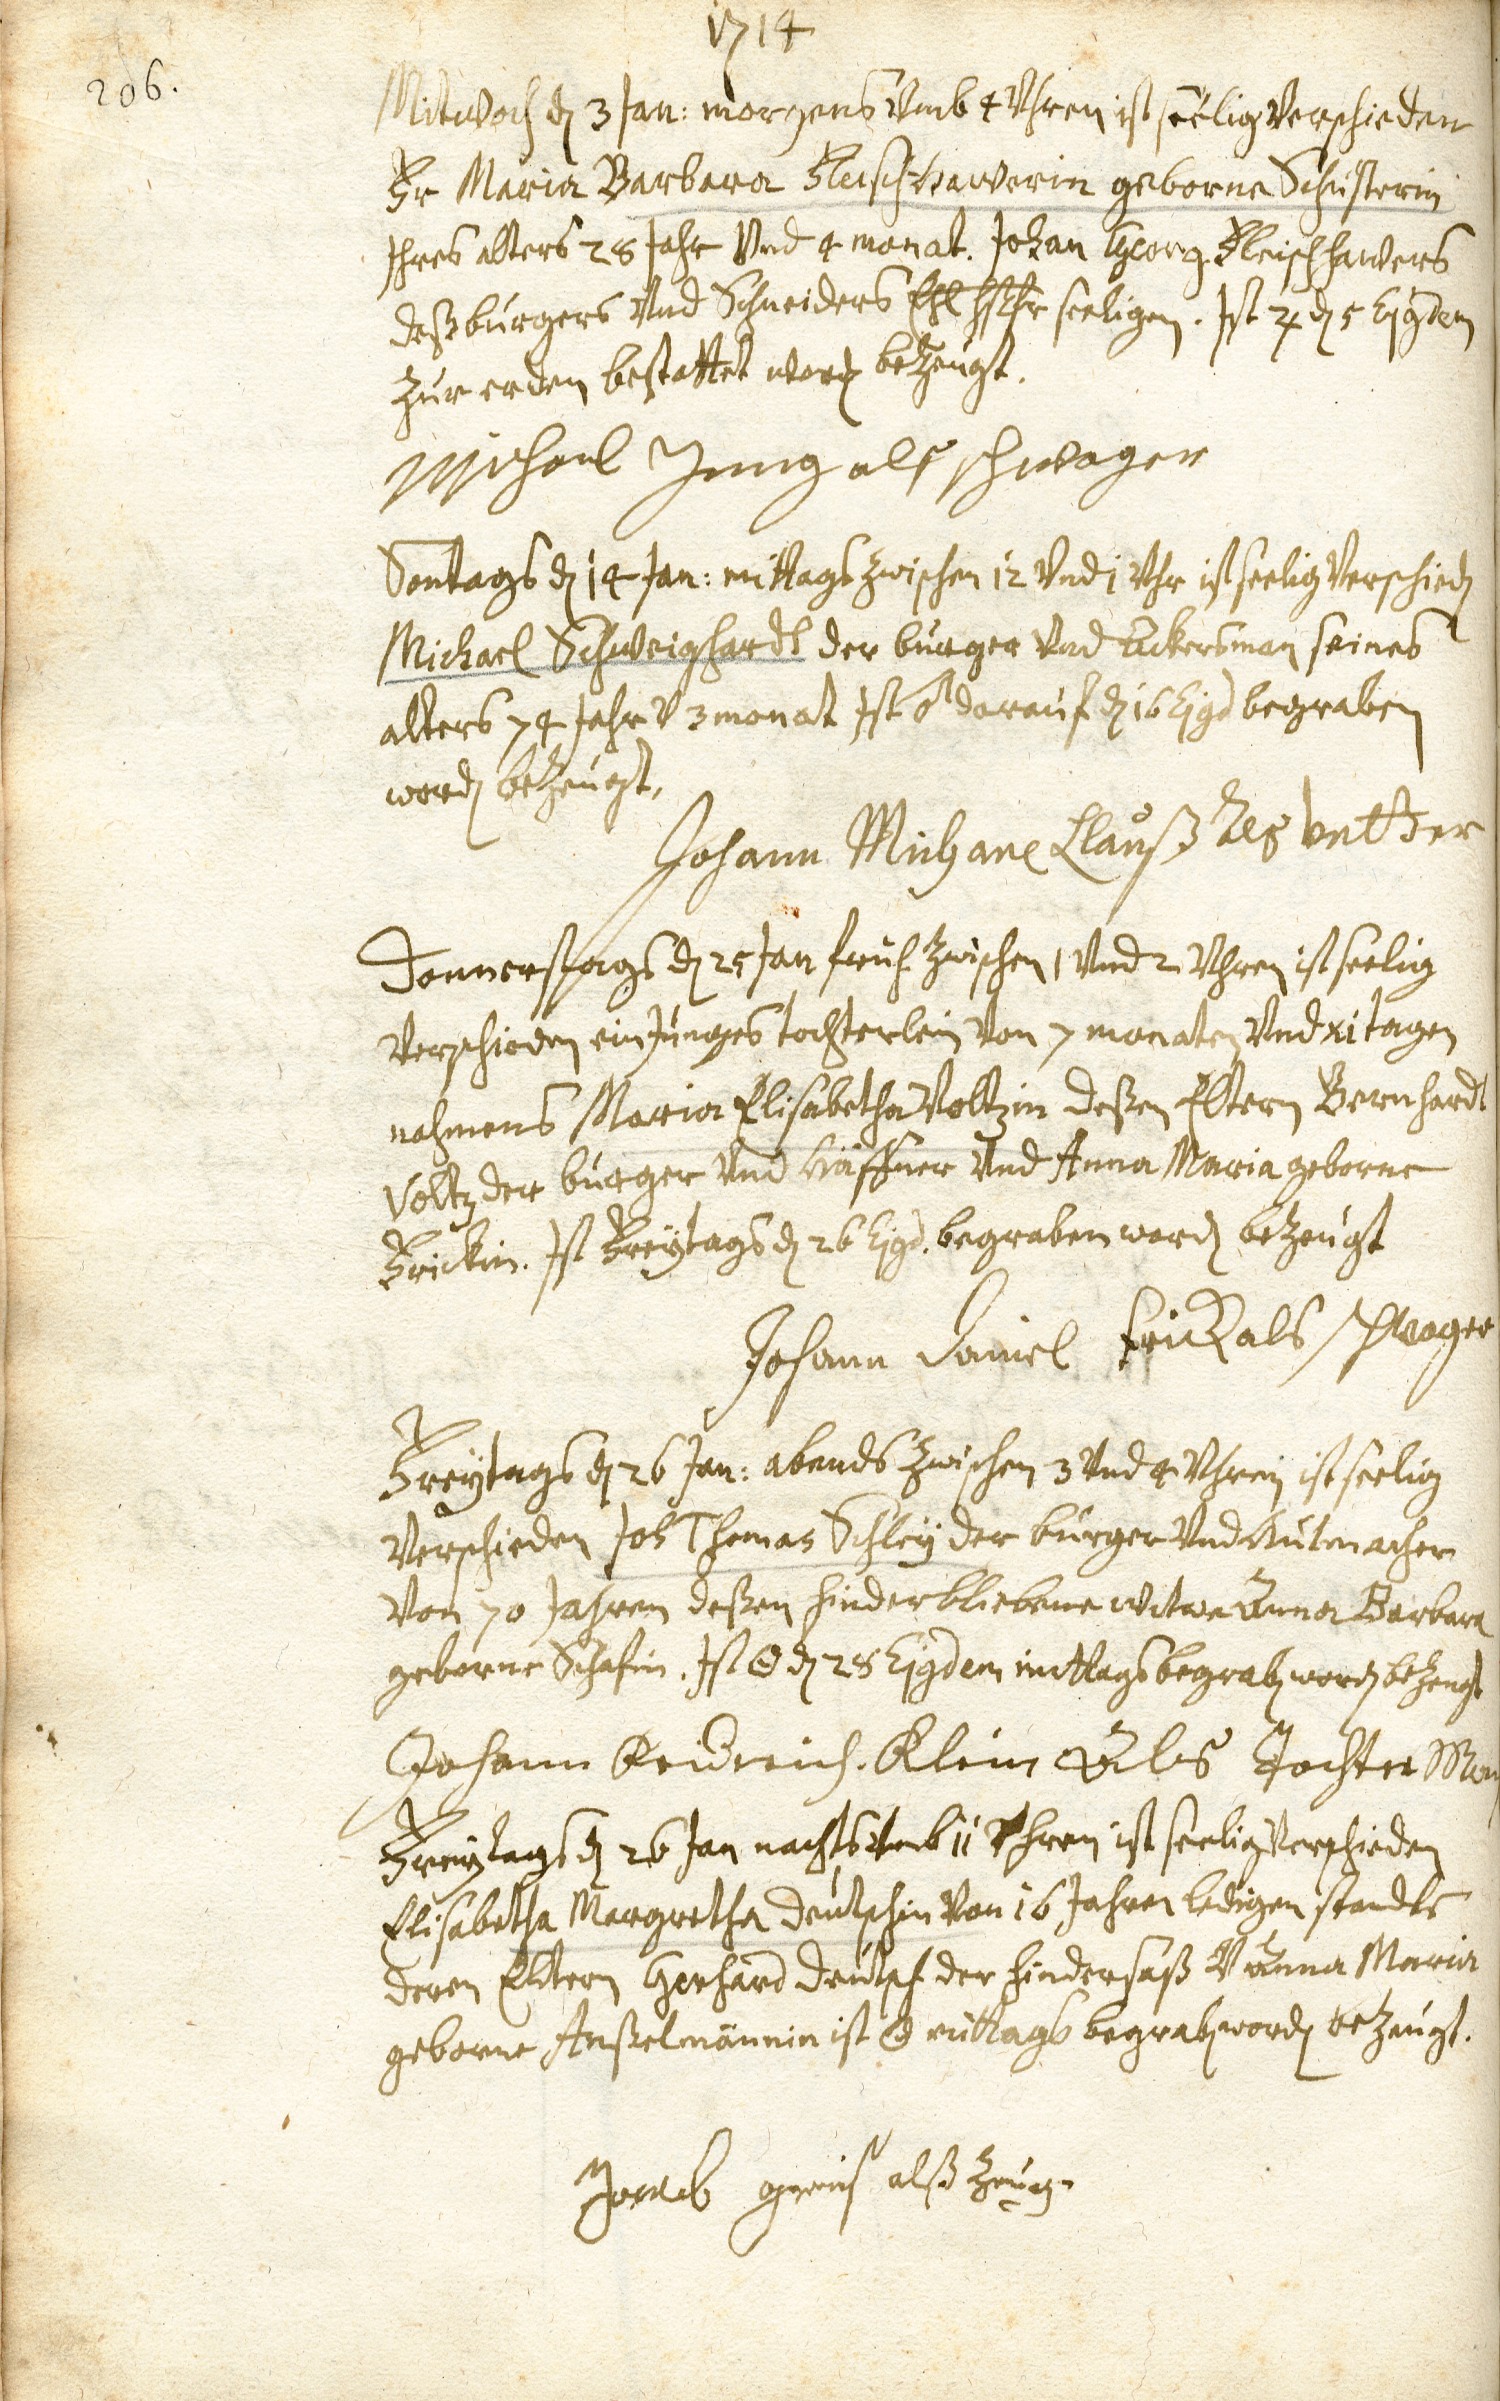 1714
206.
Mitwoch dē 3 Jan: morgens Vmb 4 Vhren ist seelig Verschieden
Fr Maria Barbara Fleischhawerin geborne Schusterin
Ihres alters 28 Jahr Vnd 4 monat. Johan Georg Fleischhawers
deß burgers Vnd Schneiders seeligen. Ist ♃ dē 5 Ejgdem
zur erden bestattet wordē bezeugt.
Michael Jung alß schwager
Sontags dē 14 Jan: mittags zwischen 12 Vnd 1 Vhr ist seelig Verschiedē
Michael Schweighardt der burger Vnd Ackersman seines
alters 74 Jahr V 3 monat Ist ♂ darauf dē 16 Ejgd begraben
wordē bezeugt,
Johann Michael Clauß Als Vetter
Donnerstags dē 25 Jan fruh zwischen 1 Vnd 2 Vhren ist seelig
Verschieden ein Junges tochterlein Von 7 monaten Vnd xi tagen
nahmens Maria Elisabetha Voltzin deßen Eltern Bernhardt
Voltz der burger Vnd Häffner Vnd Anna Maria geborne
Frickin. Ist Freytags dē 26 Ejgd. begraben wordē bezeugt
Johann Daniel Frick als schwager
Freytags dē 26 Jan: abends zwischen 3 Vnd 4 Vhren ist seelig
Verschieden Joh Thomas Schley der burger Vnd Hutmacher
Von 70 Jahren deßen hinderbliebene witwe Anna Barbara
geborne Schafin. Ist ☉ dē 28 Ejgdem mittags begrabē wordē bezeugt
Johann Fridreich Klein Als Tochter Man
Freytags dē 26 Jan nachts Vmb 11 Vhren ist seelig Verschieden
Elisabetha Margretha Deutschin Von 16 Jahren ledigen standts
deren Eltern Gerhard Deutsch der hindersaß V Anna Maria
geborne Anßelmännin ist ☉ mittags begrabē wordē bezeugt.
Jacob alß Zeug